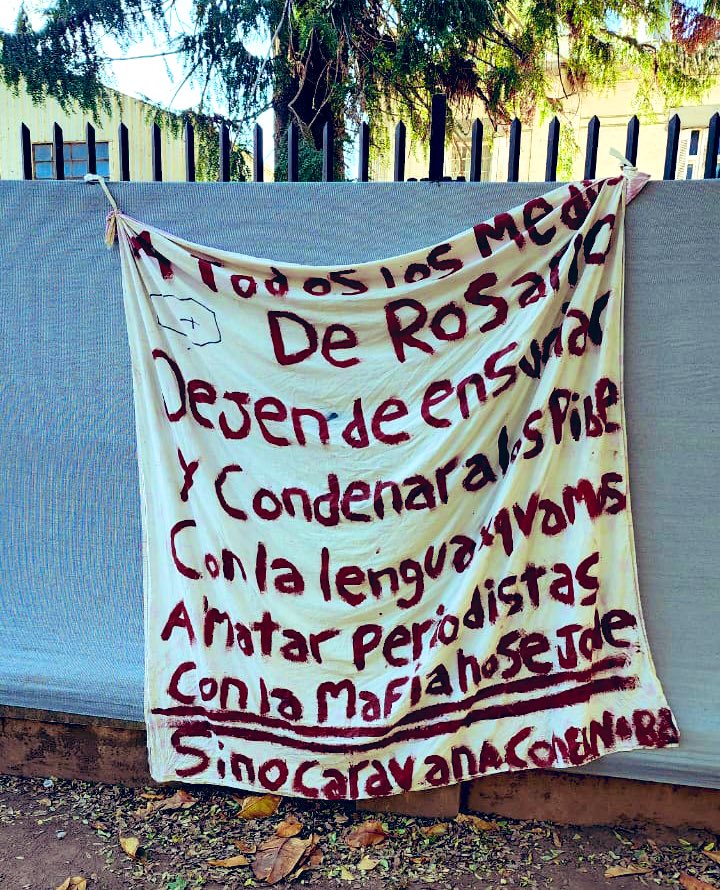 A Todos los Medi
De Rosario
Dejen de ensuciar
Y Condenar a los Pibe
Con la lengua x q vamos
A Matar Periodistas
Con la Mafia no se Jode
Sino caravana Con